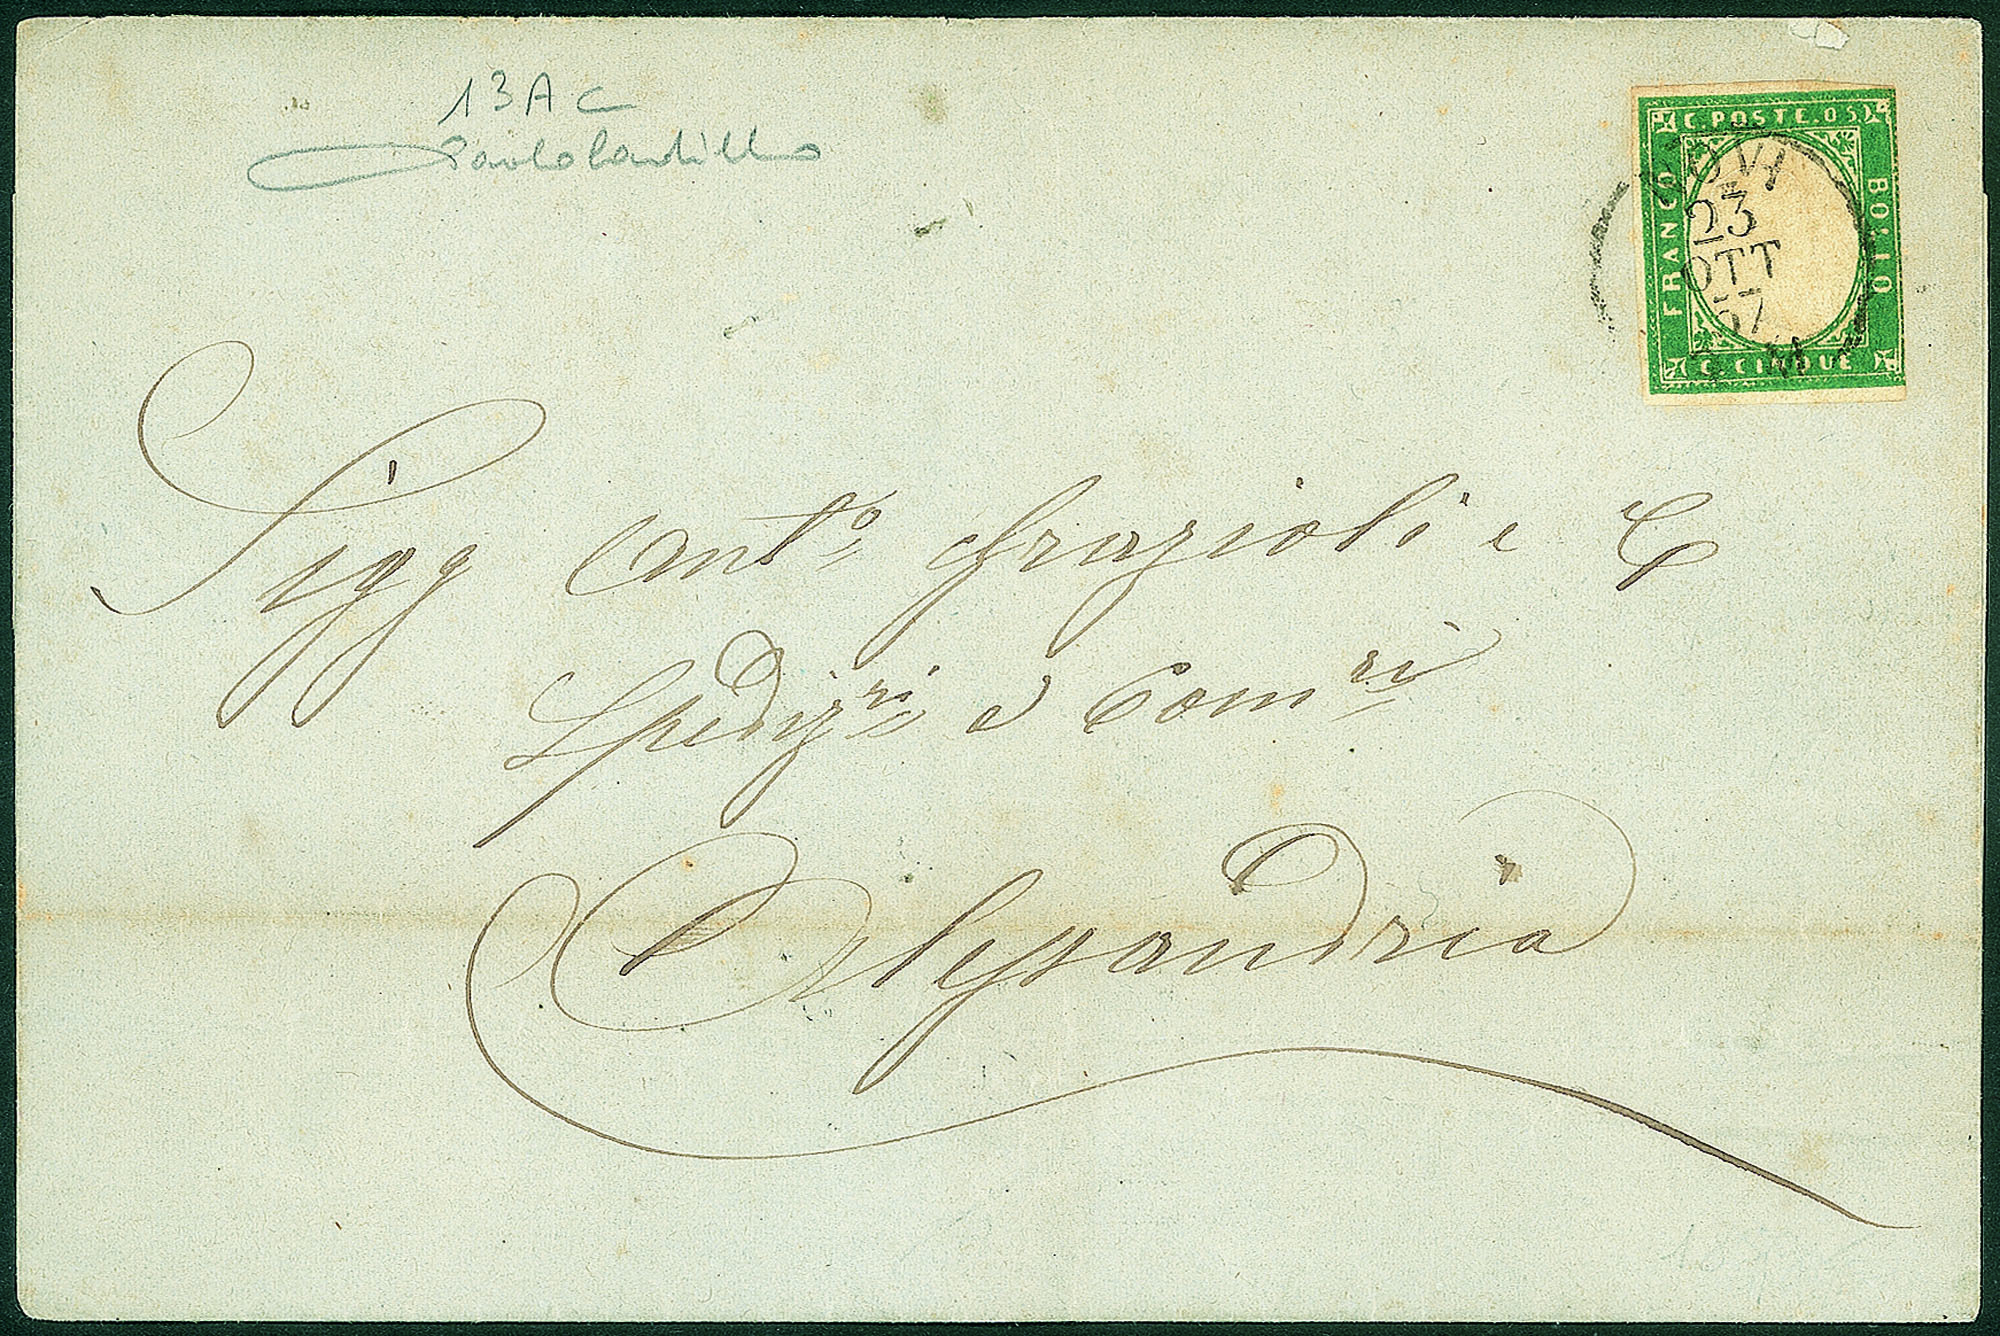 13 A c
C. POSTE. 05
FRANCO
BOLLO
C. CINQUE
NOVI
23
OTT
57
M
Sigg Ant.o Frazioli e C
Spediz.ri e Com.ri
Alessandria